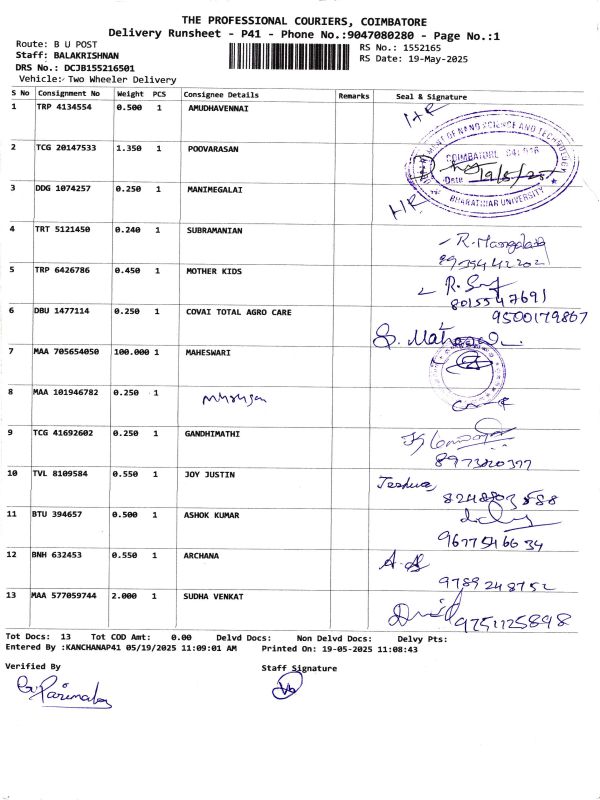 THE PROFESSIONAL COURIERS, COIMBATORE
Delivery Runsheet - P41 - Phone No.:9047080280 - Page No.:1
Route: B U POST
Staff: BALAKRISHNAN
DRS No.: DCJB155216501
Vehicle: Two Wheeler Delivery
RS No.: 1552165
RS Date: 19-May-2025
S No Consignment No Weight PCS Consignee Details Remarks Seal & Signature
1 TRP 4134554 0.500 1 AMUDHAVENNAI HR
DEPARTMENT OF NANO SCIENCE AND TECHNOLOGY
COIMBATORE 641 046
Date 19/5/25
BHARATHIAR UNIVERSITY
2 TCG 20147533 1.350 1 POOVARASAN
3 DDG 1074257 0.250 1 MANIMEGALAI HR
4 TRT 5121450 0.240 1 SUBRAMANIAN
5 TRP 6426786 0.450 1 MOTHER KIDS
8015547691
6 DBU 1477114 0.250 1 COVAI TOTAL AGRO CARE 9500179867
7 MAA 705654050 100.000 1 MAHESWARI
8 MAA 101946782 0.250 1
9 TCG 41692602 0.250 1 GANDHIMATHI
10 TVL 8109584 0.550 1 JOY JUSTIN
11 BTU 394657 0.500 1 ASHOK KUMAR
9677546634
12 BNH 632453 0.550 1 ARCHANA
9789248752
13 MAA 577059744 2.000 1 SUDHA VENKAT 9751125898
Tot Docs: 13 Tot COD Amt: 0.00 Delvd Docs: Non Delvd Docs: Delvy Pts:
Entered By :KANCHANAP41 05/19/2025 11:09:01 AM Printed On: 19-05-2025 11:08:43
Verified By Staff Signature